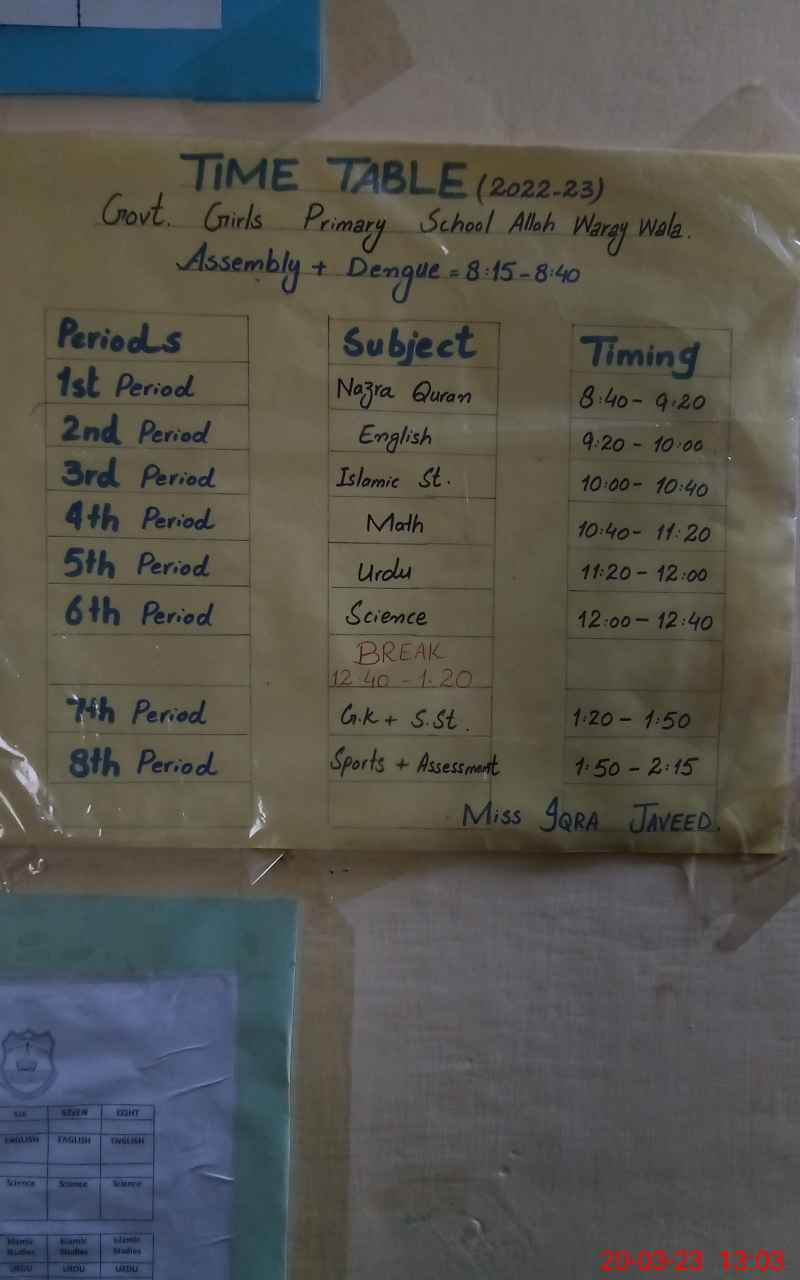 TIME TABLE (2022-23)
Govt. Girls Primary School Allah Waray Wala.
Assembly + Dengue = 8:15-8:40
Periods Subject Timing
1st Period Nazra Quran 8:40- 9:20
2nd Period English 9:20 - 10:00
3rd Period Islamic St. 10:00- 10:40
4th Period Math 10:40- 11:20
5th Period Urdu 11:20 - 12:00
6th Period Science 12:00 - 12:40
BREAK
12 40 - 1.20
7th Period G.K + S.St. 1:20 - 1:50
8th Period Sports + Assessment 1:50 - 2:15
Miss IQRA JAVEED.
SIX SEVEN EIGHT
ENGLISH ENGLISH ENGLISH
Science Science Science
Islamic Islamic Islamic
Studies Studies Studies
URDU URDU URDU
20-03-23 13:03